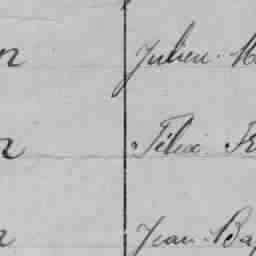 n Julien. M
n Félix. Fr
n Jean-Bap